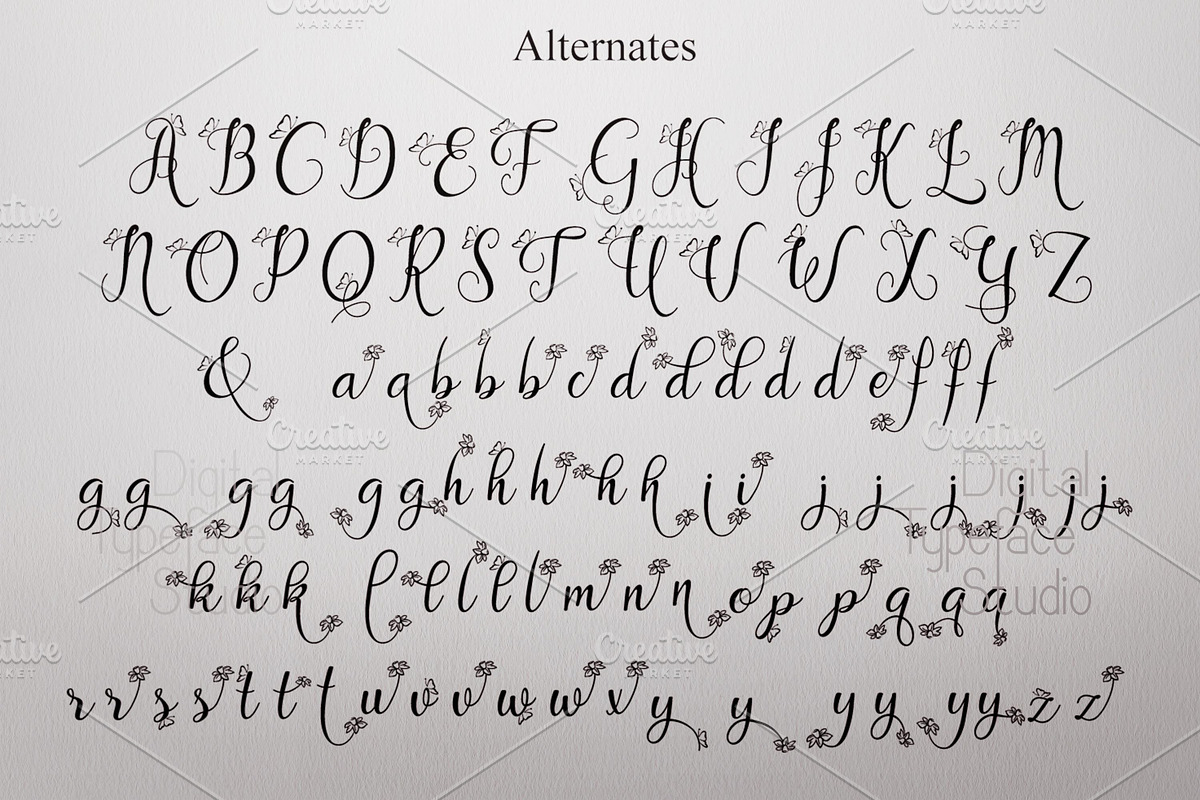 Alternates
A B C D E F G H I J K L M
N O P Q R S T U V W X Y Z
& a a b b b c d d d d d e f f f
g g g g g g h h h h h i i j j j j j j
k k k l l l l l m n n o p p q q q
r r s s t t t u v v w w x y y y y y y z z
Creative
MARKET
Digital
Typeface
Studio